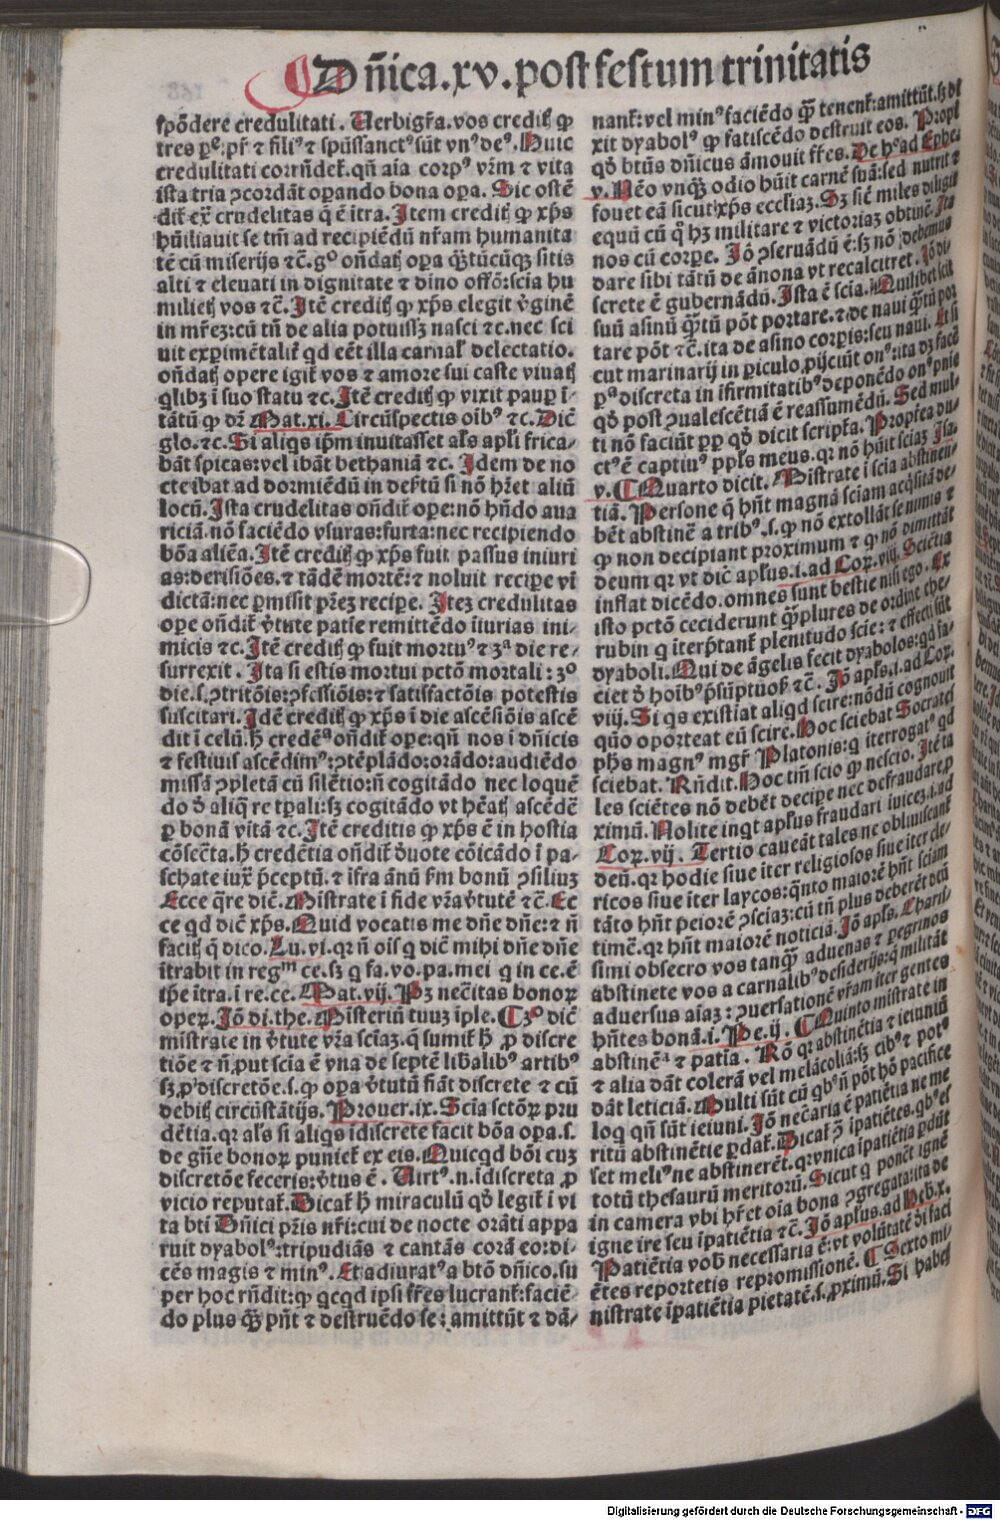 Dñica.xv.post festum trinitatis
spõdere credulitati. Uerbigr̃a. vos credit̃ ꝙ
tres ꝑe͛: pr̃ ⁊ filiꝰ ⁊ spũssanctꝰ sũt vnꝰ deꝰ. Huic
credulitati corrñdet̃. qñ aĩa corpꝰ vr̃m ⁊ vita
ista tria ↄcordãt oꝑando bona oꝑa. Sic ostẽ
dit̃ eꝝ crudelitas q̃ ẽ ĩtra. Item credit̃ ꝙ xp̃s
hũiliauit se tm̃ ad recipiẽdũ nr̃am humanita
tẽ cũ miserijs ⁊c̃. gͦ oñdat̃ oꝑa q̃ꝫtũcũqꝫ sitis
alti ⁊ eleuati in dignitate ⁊ dino offõ: scĩa hu
miliet̃ vos ⁊c̃. Itẽ credit̃ ꝙ xp̃s elegit ṽginẽ
in mr̃eꝫ: cũ tñ de alia potuissꝫ nasci ⁊c. nec sci
uit experimẽtalit̃ qd eẽt illa carnal̃ delectatio.
oñdat̃ opere igit̃ vos ⁊ amore sui caste viuat̃
qlibꝫ ĩ suo statu ⁊c. Itẽ credit̃ ꝙ vixit pauꝑ ĩ-
tãtũ ꝙ dr̃ Mat.xi. Circũspectis oĩbꝰ ⁊c. Dic̃
glo.⁊c. Si aliqs ip̃m inuitasset al̃s apl̃i frica-
bãt spicas: vel ibãt bethaniã ⁊c. Idem de no
cte ibat ad dormiẽdũ in deẽtũ si nõ hr̃et aliũ
locũ. Ista crudelitas oñdit̃ oꝑe: nõ hñdo aua
riciã. nõ faciẽdo vsuras: furta: nec recipiendo
bõa aliẽa. Itẽ credit̃ ꝙ xp̃s fuit passus iniuri
as: derisiões. ⁊ tãdẽ mortẽ: ⁊ noluit reciꝑe vĩ
dictã: nec ꝑmisit pr̃eꝫ reciꝑe. Iteꝫ credulitas
oꝑe oñdit̃ ṽtute patiẽ remittẽdo ĩiurias ini-
micis ⁊c. Itẽ credit̃ ꝙ fuit mortuꝰ ⁊ 3ª die re-
surrexit. Ita si estis mortui pctõ mortali: 3º
die.s. ↄtritõis: ↄfessiõis: ⁊ satisfactõis potestis
suscitari. Idẽ credit̃ ꝙ xp̃s ĩ die ascẽsiõis ascẽ
dit ĩ celũ. h̃ credẽª oñdit̃ oꝑe: qñ nos ĩ dñicis
⁊ festiuis ascẽdimꝰ: ↄtẽplãdo: orãdo: audiẽdo
missã ↄpletã cũ silẽtio: ñ cogitãdo nec loquẽ
do ð aliq̃ re tꝑali: sꝫ cogitãdo vt heãt̃ ascẽdẽ
ꝑ bonã vitã ⁊c. Itẽ creditis ꝙ xp̃s ẽ in hostia
cõsecta. h̃ credẽtia oñdit̃ ðuote cõicãdo ĩ pa-
schate iuxͭ p̃ceptũ. ⁊ ĩfra ãnũ fm bonũ ↄsiliuꝫ
Ecce q̃re dic̃. Mistrate ĩ fide vr̃a ṽtutẽ ⁊c̃. Ec
ce qd dic̃ xp̃s. Quid vocatis me dñe dñe: ⁊ ñ
facit̃ q̃ dico. Lu.vi. qꝛ ñ oĩs q dic̃ mihi dñe dñe
ĩtrabit in regᵐ ce. sꝫ q fa. vo. pa. mei q in ce. ẽ
ip̃e ĩtra. ĩ re. ce. Mat.vij. Pꝫ nec̃itas bonoꝝ
opeꝝ. Iõ .ij. the. Misteriũ tuuꝫ ĩple. ¶ 3º dic̃
mistrate in ṽtute vr̃a sciaꝫ. q̃ sumit̃ h̃ ꝓ discre
tiõe ⁊ ñ, put scia ẽ vna de septẽ libãlibꝰ artibꝰ
sꝫ ꝓ discretõe. s. ꝙ oꝑa ṽtutũ fiãt discrete ⁊ cũ
debit̃ circũstãtijs. Prouer.ix. Scĩa sctõꝝ pru
dẽtia. qꝛ al̃s si aliqs ĩdiscrete facit bõa oꝑa. s.
de gñe bonoꝝ puniet̃ ex eis. Quicqd bõi cuꝫ
discretõe feceris: ṽtus ẽ. Uirtꝰ. n. ĩdiscreta ꝓ
vicio reputat̃. Dicat̃ h̃ miraculũ qð legit̃ ĩ vi
ta bti Dñici pr̃is nr̃i: cui de nocte orãti appa
ruit dyabolꝰ: tripudiãs ⁊ cantãs corã eo: di-
cẽs magis ⁊ minꝰ. Et adiuratꝰ a btõ dñico. su
per hoc rñdit: ꝙ qcqd ipsi fr̃es lucrant̃: faciẽ-
do plus q̃ꝫ pñt ⁊ destruẽdo se: amittũt ⁊ dã-
nant̃: vel minꝰ faciẽdo q̃ꝫ tenent̃: amittũt. sꝫ
xit dyabolꝰ ꝙ fatiscẽdo destruit eos. Propt
qð btũs dñicus ãmouit fr̃es. De hꝰ ad Ephe.
v. Nẽo vnq̃ꝫ odio hũit carnẽ suã: sed nutrit ⁊
fouet eã sicut xp̃s eccliaꝫ. Sꝫ sic̃ miles diligit
equũ cũ q̃ hꝫ militare ⁊ victoriaꝫ obtinẽ. Ita
nos cũ corꝑe. Iõ ↄseruãdũ ẽ: sꝫ nõ debemus
dare sibi tãtũ de ãnona vt recalcitret. Iõ di
screte ẽ gubernãdũ. Ista ẽ scia. Quilibet scit
suũ asinũ q̃ꝫtũ põt portare. ⁊ de naui q̃ꝫtũ por
tare põt ⁊c̃. ita de asino corꝑis: seu naui. Et si
cut marinarij in ꝑiculo, pijciũt onꝰ: ita dꝫ facẽ
ꝑª discreta in ĩfirmitatibꝰ deponẽdo onꝰ pñie
qð post ↄualescẽtiã ẽ reassumẽdũ. Sed mul-
ti nõ faciũt ꝓꝑ qð dicit script̃a. Propt̃ea du-
ctꝰ ẽ captiuꝰ ppl̃s meus. qꝛ nõ hũit sciaꝫ Isa.
v. ¶ Quarto dicit. Mistrate ĩ scia abstinen-
tiã. Persone q̃ hñt magnã sciam acq̃sitã de-
bẽt abstinẽ a tribꝰ. s. ꝙ nõ extollãt se nimis ⁊
ꝙ non decipiant proximum ⁊ ꝙ nõ dimittãt
deum qꝛ vt dic̃ apl̃us. i. ad Coꝝ. viij. Sciẽtia
inflat dicẽdo. omnes sunt bestie nisi ego. Ex
isto pctõ ceciderunt q̃ꝫplures de ordine che-
rubin q iterp̃tant̃ plenitudo scie: ⁊ effecti sũt
dyaboli. Qui de ãgelis fecit dyabolos: qd fa-
ciet ð hoĩbꝰ p̃sũptuos̃ ⁊c̃. Iõ apl̃s. i. ad Coꝝ.
viij. Si qs existiat aliqd scire: nõdũ cognouit
quõ oporteat eũ scire. Hoc sciebat Socrates
ph̃s magnꝰ mgr̃ Platonis: q iterrogatꝰ qd
sciebat. Rñdit. Hoc tm̃ scio ꝙ nescio. Itẽ ta
les sciẽtes nõ debẽt deciꝑe nec defraudare ꝓ
ximũ. Nolite inqt apl̃us fraudari iuiceꝫ. i. ad
Coꝝ.vij. Tertio caueãt tales ne obliuiscant̃
deũ. qꝛ hodie siue iter religiosos siue iter cle-
ricos siue iter laycos: q̃nto maiorẽ hñt sciam
tãto hñt peiorẽ ↄsciaꝫ: cũ tñ plus deberẽt deũ
timẽ. qꝛ hñt maiorẽ noticiã. Iõ apl̃s. Charis-
simi obsecro vos tanq̃ꝫ aduenas ⁊ ꝑegrinos
abstinete vos a carnalibꝰ desiderijs: q̃ militãt
aduersus aĩaꝫ: ↄuersationẽ vr̃am iter gentes
hñtes bonã. i. Pe. ij. ¶ Quinto mistrate in
abstinẽª ⁊ patia. Rõ qꝛ abstinẽtia ⁊ ieiuniũ
⁊ alia dãt colerã vel melãcoliã: sꝫ cibꝰ ⁊ potꝰ
dãt leticiã. Multi sũt cũ qbꝰ ñ põt hõ pacifice
loq qñ sũt ieiuni. Iõ nec̃aria ẽ patiẽtia ne me
ritũ abstinẽtie ꝑdat̃. Dicat̃ ↄ̃ ĩpatiẽtes. qbꝰ eẽ
set meliꝰ ne abstinerẽt. qꝛ vnica ĩpatiẽtia ꝑdũt
totũ thesaurũ meritoꝝ. Sicut q ponẽt ignẽ
in camera vbi hr̃et oĩa bona ↄgregata: ita de
igne ire seu ĩpatiẽtia ⁊c̃. Iõ apl̃us. ad Heb.x.
Patiẽtia vob̃ necessaria ẽ: vt volũtatẽ di faci
ẽtes reportetis repromissionẽ. ¶ Sexto mi-
nistrate ĩpatiẽtia pietatẽ. s. ꝓximũ. Si habes
Digitalisierung gefördert durch die Deutsche Forschungsgemeinschaft - DFG